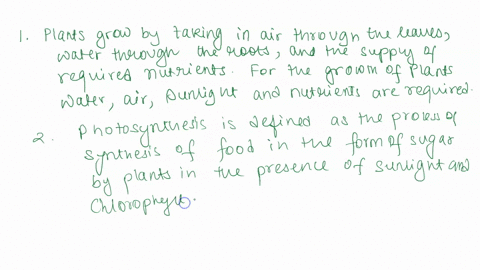 1. Plants grow by taking in air through the leaves,
water through the roots, and the supply of
required nutrients. For the growth of Plants
Water, air, Sunlight and nutrients are required.
2. Photosynthesis is defined as the process of
synthesis of food in the form of sugar
by plants in the presence of sunlight and
Chlorophyll.